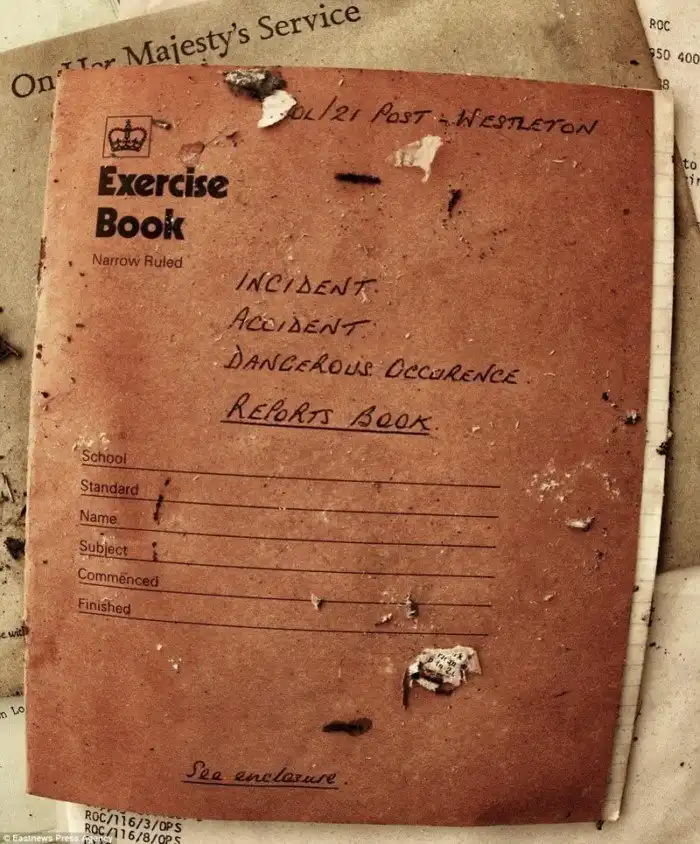 On Her Majesty's Service
ROC
950 400
to
OL/21 POST - WESTLETON
Exercise
Book
Narrow Ruled
INCIDENT.
ACCIDENT.
DANGEROUS OCCURENCE.
REPORTS BOOK.
School
Standard
Name
Subject
Commenced
Finished
See enclosure.
ROC/116/3/OPS
ROC/116/8/OPS
© Eastnews Press Agency